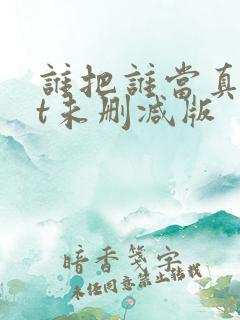 誰把誰當真
t未删减版
暗香箋字
未经同意禁止转载